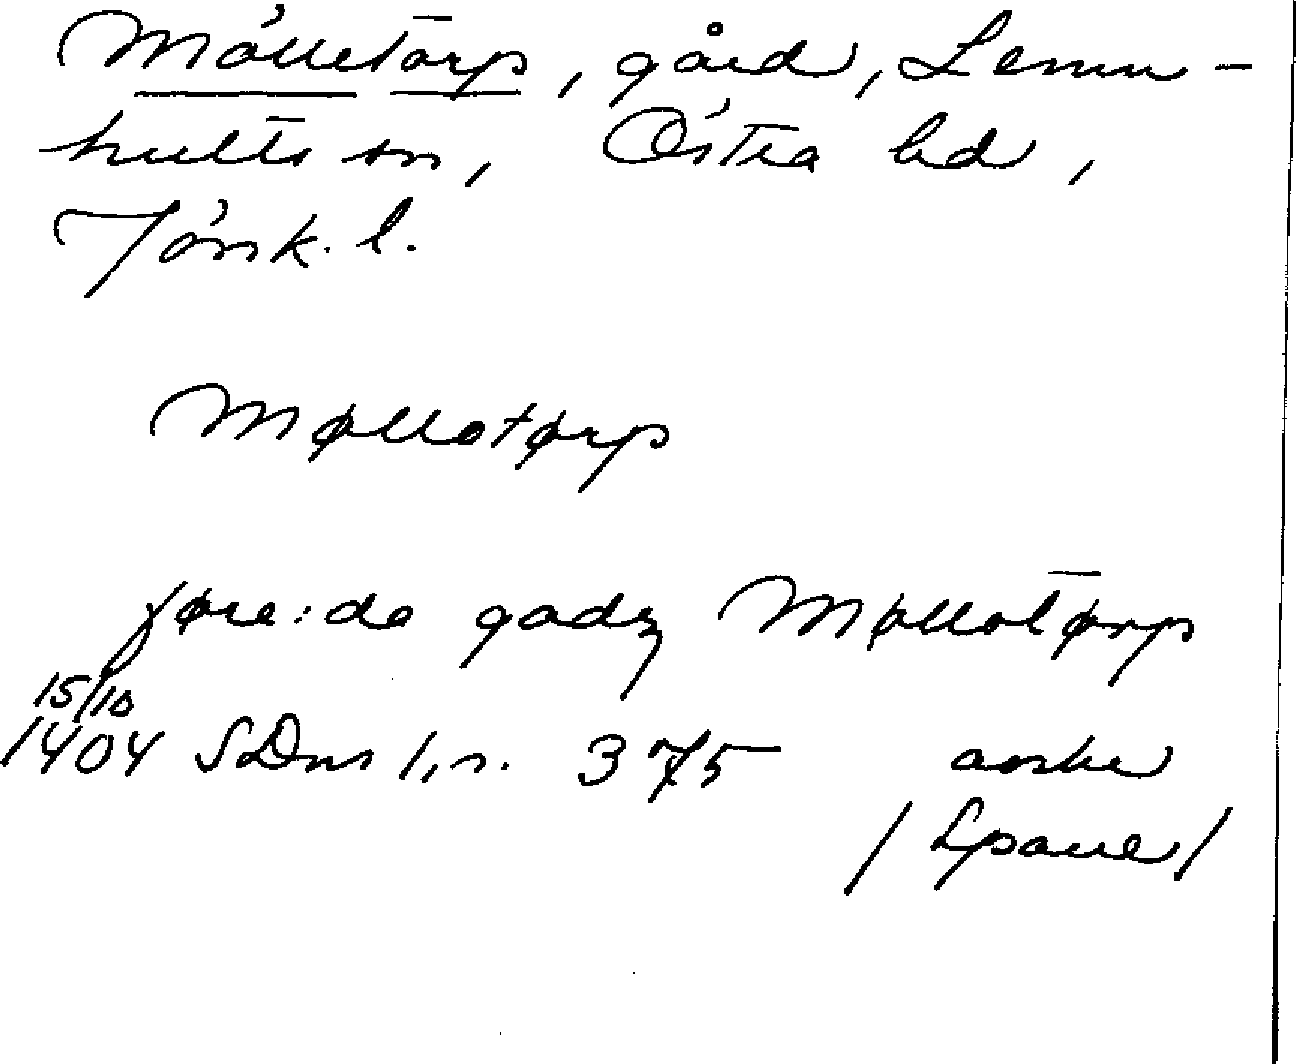 Mölletorp, gård, Lemn-
hults sn, Östra hd,
Jönk. l.
Møllotørp
føre:de godz Møllotørp
15/10
1404 SDns 1, s. 375 avskr
/Spaue/